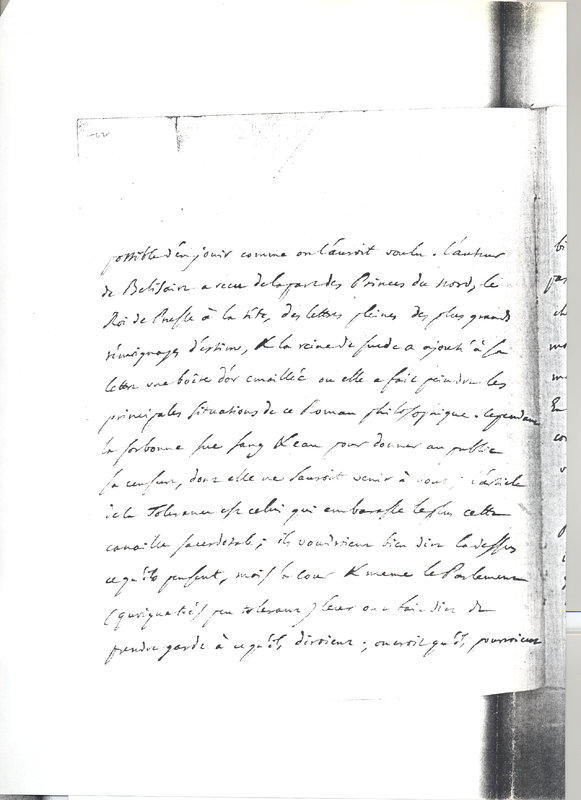 possible d'en jouir comme on l'auroit voulu. l'auteur
de Belisaire a recu de la part des Princes du nord, le
Roi de Prusse à la tête, des lettres pleines des plus grands
témoignages d'estime, & la reine de suede a ajouté à sa
lettre une boîte d'or emaillée ou elle a fait peindre les
principales situations de ce Roman philosophique. cependant
la sorbonne sue sang & eau pour donner au public
sa censure, dont elle ne sauroit venir à bout; l'article
de la Tolerance est celui qui embarasse le plus cette
canaille sacerdotale; ils voudroient bien dire la dessus
ce qu'ils pensent, mais la cour & meme le Parlement
(quoique très peu tolerant) leur ont fait dire de
prendre garde à ce qu'ils diroient; on croit qu'ils pourroient